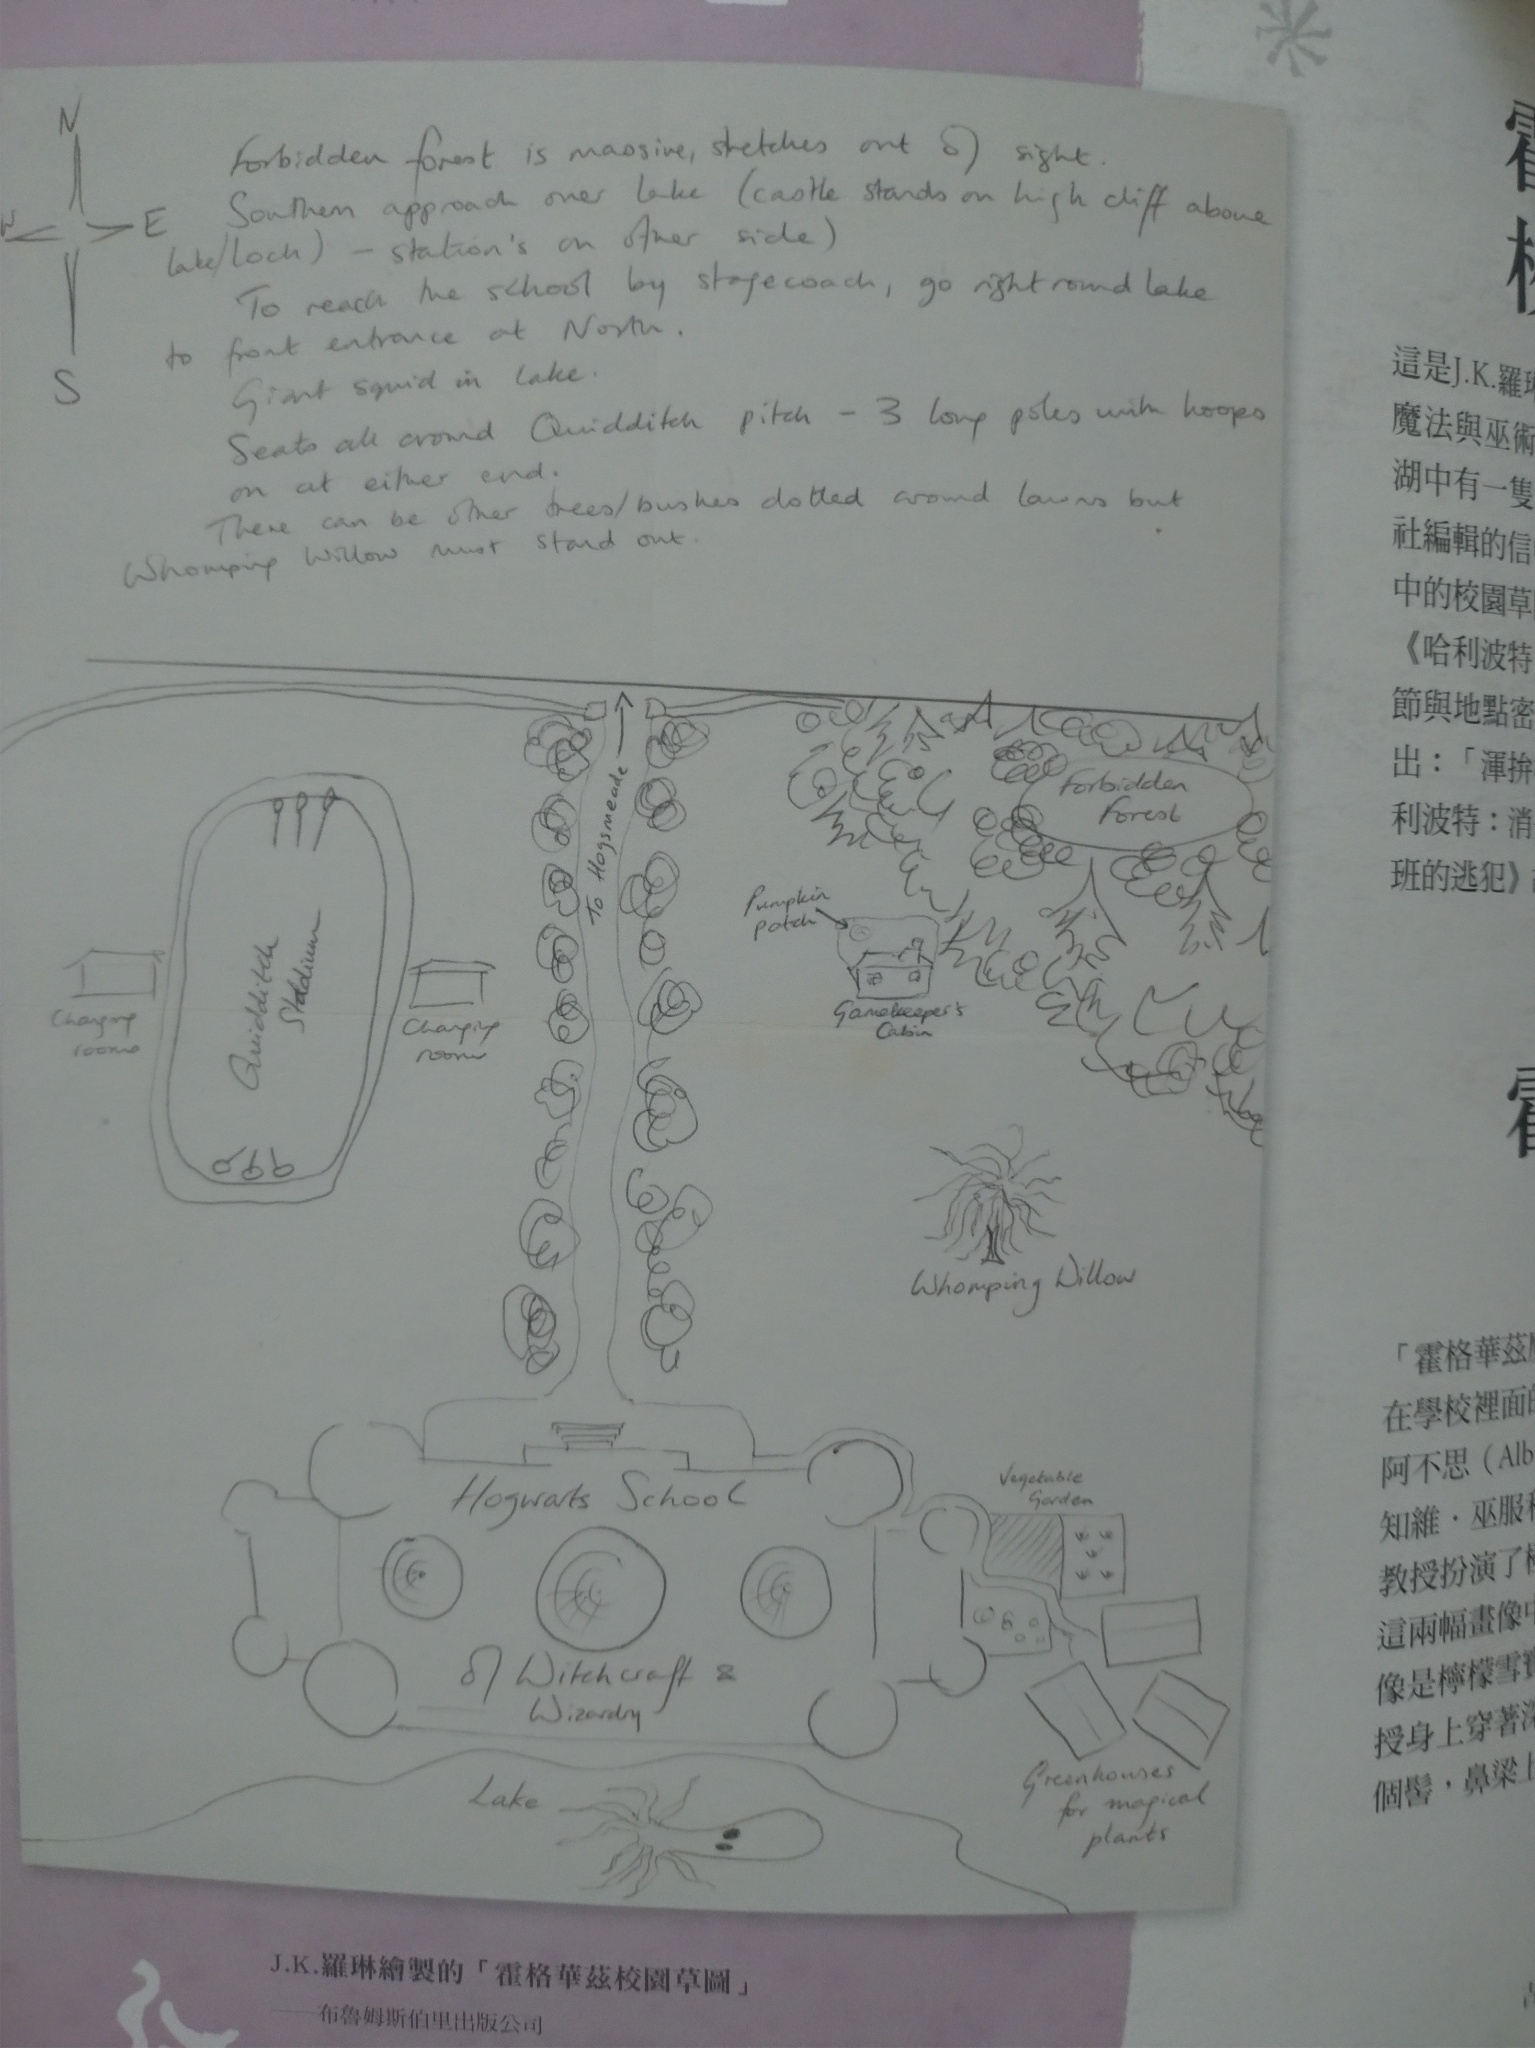 N
E
S
Forbidden forest is massive, stretches out of sight.
Southern approach over lake (castle stands on high cliff above
lake/loch) – station's on other side)
To reach the school by stagecoach, go right round lake
to front entrance at North.
Giant squid in lake.
Seats all around Quidditch pitch – 3 long poles with hoops
on at either end.
There can be other trees/bushes dotted around lawns but
Whomping Willow must stand out.
To Hogsmeade
Forbidden
Forest
Pumpkin
patch
Gamekeeper's
Cabin
Quidditch
Stadium
Changing
rooms
Changing
rooms
Whomping Willow
Hogwarts School
of Witchcraft &
Wizardry
Vegetable
Garden
Greenhouses
for magical
plants
Lake
J.K.羅琳繪製的「霍格華茲校園草圖」
——布魯姆斯伯里出版公司
這是J.K.羅琳
魔法與巫術
湖中有一隻
社編輯的信
中的校園草
《哈利波特
節與地點密
出：「渾拚
利波特：消
班的逃犯》
霍
「霍格華茲
在學校裡面的
阿不思（Alb
知維．巫服
教授扮演了
這兩幅畫像中
像是檸檬雪寶
授身上穿著深
個髻，鼻梁上